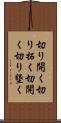 切り開く切
り拓く切開
く切り墾く